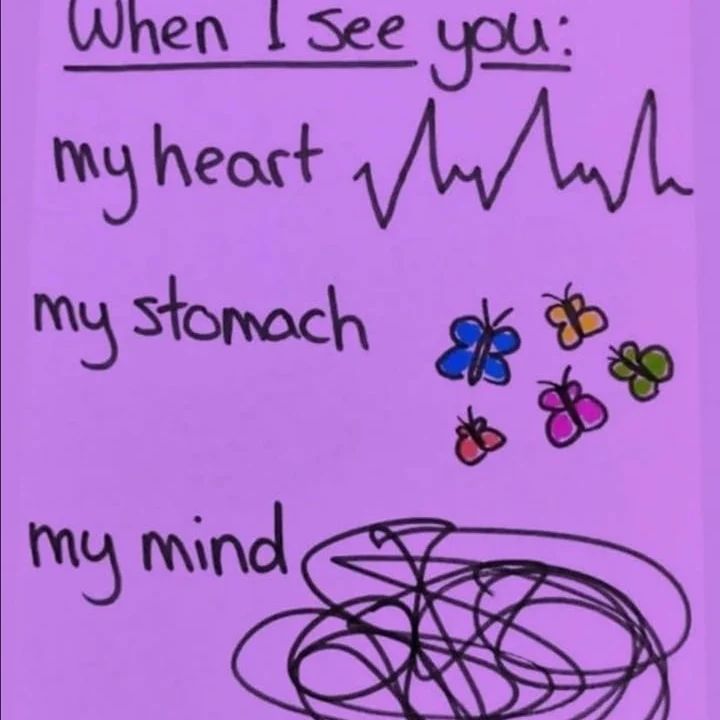 When I see you:
my heart
my stomach
my mind